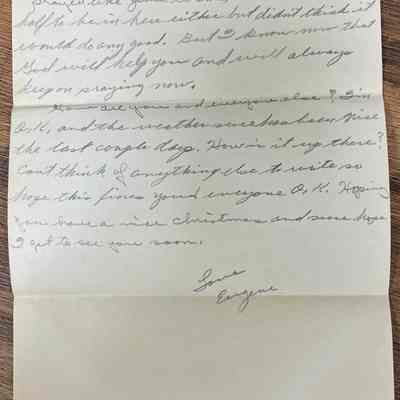 prayed like
half to be in here either but didn't think it
would do any good. But I know now that
God will help you and will always
keep on praying now.
How are you and everyone else? I'm
O.K. and the weather sure has been nice
the last couple days. How is it up there?
Can't think of anything else to write so
hope this fines you & everyone O.K. Hoping
you have a nice Christmas and sure hope
I get to see you soon.
Love
Eugene